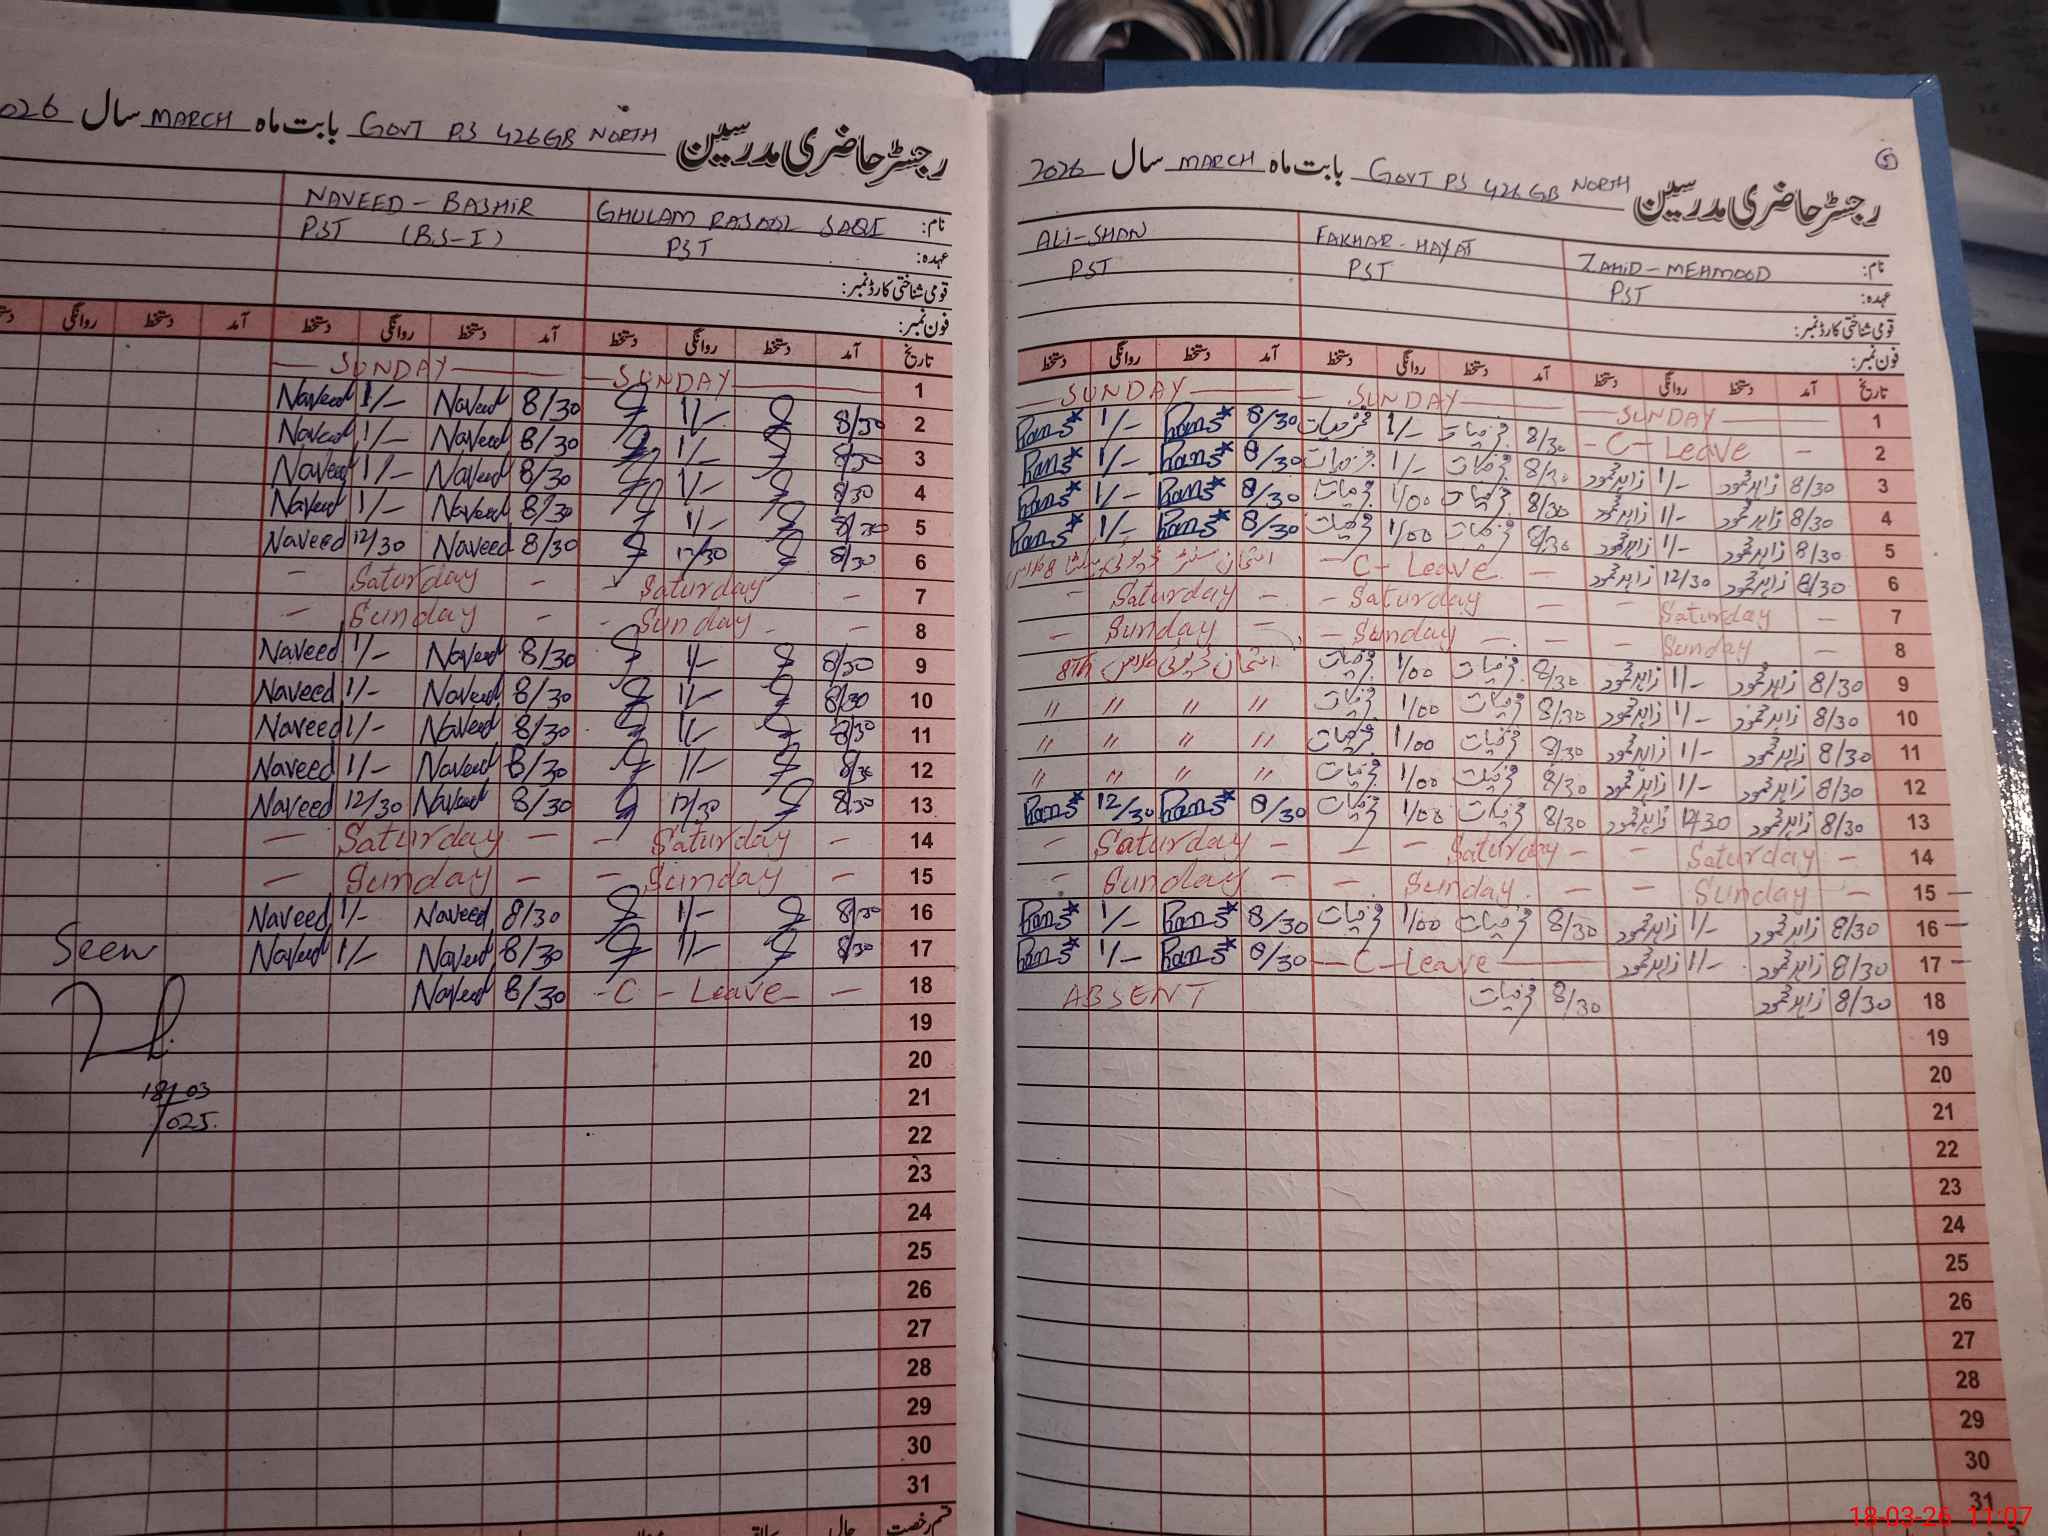 رجسٹر حاضری مدرسین GOVT PS 426GB NORTH بابت ماہ MARCH سال 2026
5
نام: ZAHID-MEHMOOD FAKHAR-HAYAT ALI-SHAN
عہدہ: PST PST PST
قومی شناختی کارڈ نمبر:
فون نمبر:
تاریخ آمد دستخط روانگی دستخط آمد دستخط روانگی دستخط آمد دستخط روانگی دستخط
1 SUNDAY SUNDAY SUNDAY
2 C-Leave 8/30 فخر حیات 1/- فخر حیات 8/30 1/-
3 8/30 زاہد محمود 1/- زاہد محمود 8/30 فخر حیات 1/- فخر حیات 8/30 1/-
4 8/30 زاہد محمود 1/- زاہد محمود 8/30 فخر حیات 1/00 فخر حیات 8/30 1/-
5 8/30 زاہد محمود 1/- زاہد محمود 8/30 فخر حیات 1/00 فخر حیات 8/30 1/-
6 8/30 زاہد محمود 12/30 زاہد محمود C-Leave امتحان
7 Saturday Saturday Saturday
8 Sunday Sunday Sunday
9 8/30 زاہد محمود 1/- زاہد محمود 8/30 فخر حیات 1/00 فخر حیات امتحان ڈیوٹی کلاس 8TH
10 8/30 زاہد محمود 1/- زاہد محمود 8/30 فخر حیات 1/00 فخر حیات " " " "
11 8/30 زاہد محمود 1/- زاہد محمود 8/30 فخر حیات 1/00 فخر حیات " " " "
12 8/30 زاہد محمود 1/- زاہد محمود 8/30 فخر حیات 1/00 فخر حیات " " " "
13 8/30 زاہد محمود 12/30 زاہد محمود 8/30 فخر حیات 1/00 فخر حیات 8/30 12/30
14 Saturday Saturday Saturday
15 Sunday Sunday Sunday
16 8/30 زاہد محمود 1/- زاہد محمود 8/30 فخر حیات 1/00 فخر حیات 8/30 1/-
17 8/30 زاہد محمود 1/- زاہد محمود C-Leave 8/30 1/-
18 8/30 زاہد محمود 8/30 فخر حیات ABSENT
19
20
21
22
23
24
25
26
27
28
29
30
31
رجسٹر حاضری مدرسین GOVT PS 426GB NORTH بابت ماہ MARCH سال 2026
نام: GHULAM RASOOL SAQI NAVEED-BASHIR
عہدہ: PST PST (B.S-I)
قومی شناختی کارڈ نمبر:
فون نمبر:
تاریخ آمد دستخط روانگی دستخط آمد دستخط روانگی دستخط آمد دستخط روانگی
1 SUNDAY SUNDAY
2 8/30 1/- 8/30 Naveed 1/- Naveed
3 8/30 1/- 8/30 Naveed 1/- Naveed
4 8/30 1/- 8/30 Naveed 1/- Naveed
5 8/30 1/- 8/30 Naveed 1/- Naveed
6 8/30 12/30 8/30 Naveed 12/30 Naveed
7 Saturday Saturday
8 Sunday Sunday
9 8/30 1/- 8/30 Naveed 1/- Naveed
10 8/30 1/- 8/30 Naveed 1/- Naveed
11 8/30 1/- 8/30 Naveed 1/- Naveed
12 8/30 1/- 8/30 Naveed 1/- Naveed
13 8/30 12/30 8/30 Naveed 12/30 Naveed
14 Saturday Saturday
15 Sunday Sunday
16 8/30 1/- 8/30 Naveed 1/- Naveed
17 8/30 1/- 8/30 Naveed 1/- Naveed
18 C-Leave 8/30 Naveed
19
20
21
22
23
24
25
26
27
28
29
30
31
قسم رخصت
Seen
18/03
/025.
18-03-26 11:07